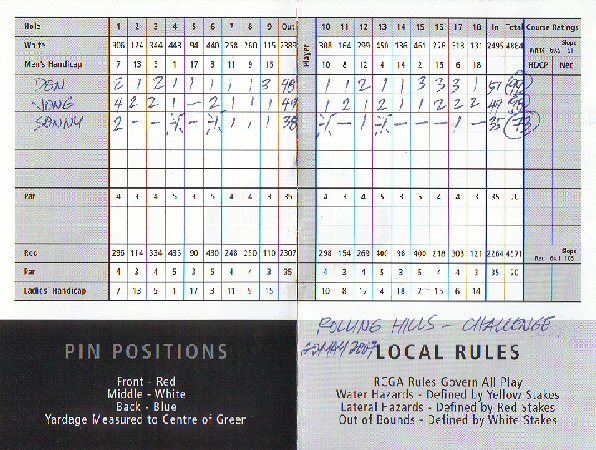 Hole 1 2 3 4 5 6 7 8 9 Out 10 11 12 13 14 15 16 17 18 In Total Course Ratings
White 306 124 344 443 94 440 258 260 115 2383 Player 308 164 299 450 136 461 226 318 131 2495 Slope
Men's Handicap 7 13 5 1 17 3 11 9 15 10 8 12 4 14 2 16 6 18 HDCP Net
DEN 2 1 2 1 1 1 1 1 3 1 1 2 1 1 3 3 3 1
JONG 4 2 2 1 – 2 1 1 1 1 2 1 2 1 1 2 2 2
SONNY 2 – –
Par 4 3 4 5 3 5 4 4 3 35 4 3 4 5 3 5 4 4 3 35 70
Red 296 114 334 435 90 430 248 250 110 2307 298 154 269 400 400 218 303 121 2264 4571 Slope
Par 4 3 4 5 3 5 4 4 3 35 4 3 4 5 3 5 4 4 3 35 70
Ladies Handicap 7 13 5 1 17 3 11 9 15 10 8 12 4 18 2 16 6 14
ROLLING HILLS – CHALLENGE
MAY 2007
PIN POSITIONS
Front - Red
Middle - White
Back - Blue
Yardage Measured to Centre of Green
LOCAL RULES
RCGA Rules Govern All Play
Water Hazards - Defined by Yellow Stakes
Lateral Hazards - Defined by Red Stakes
Out of Bounds - Defined by White Stakes